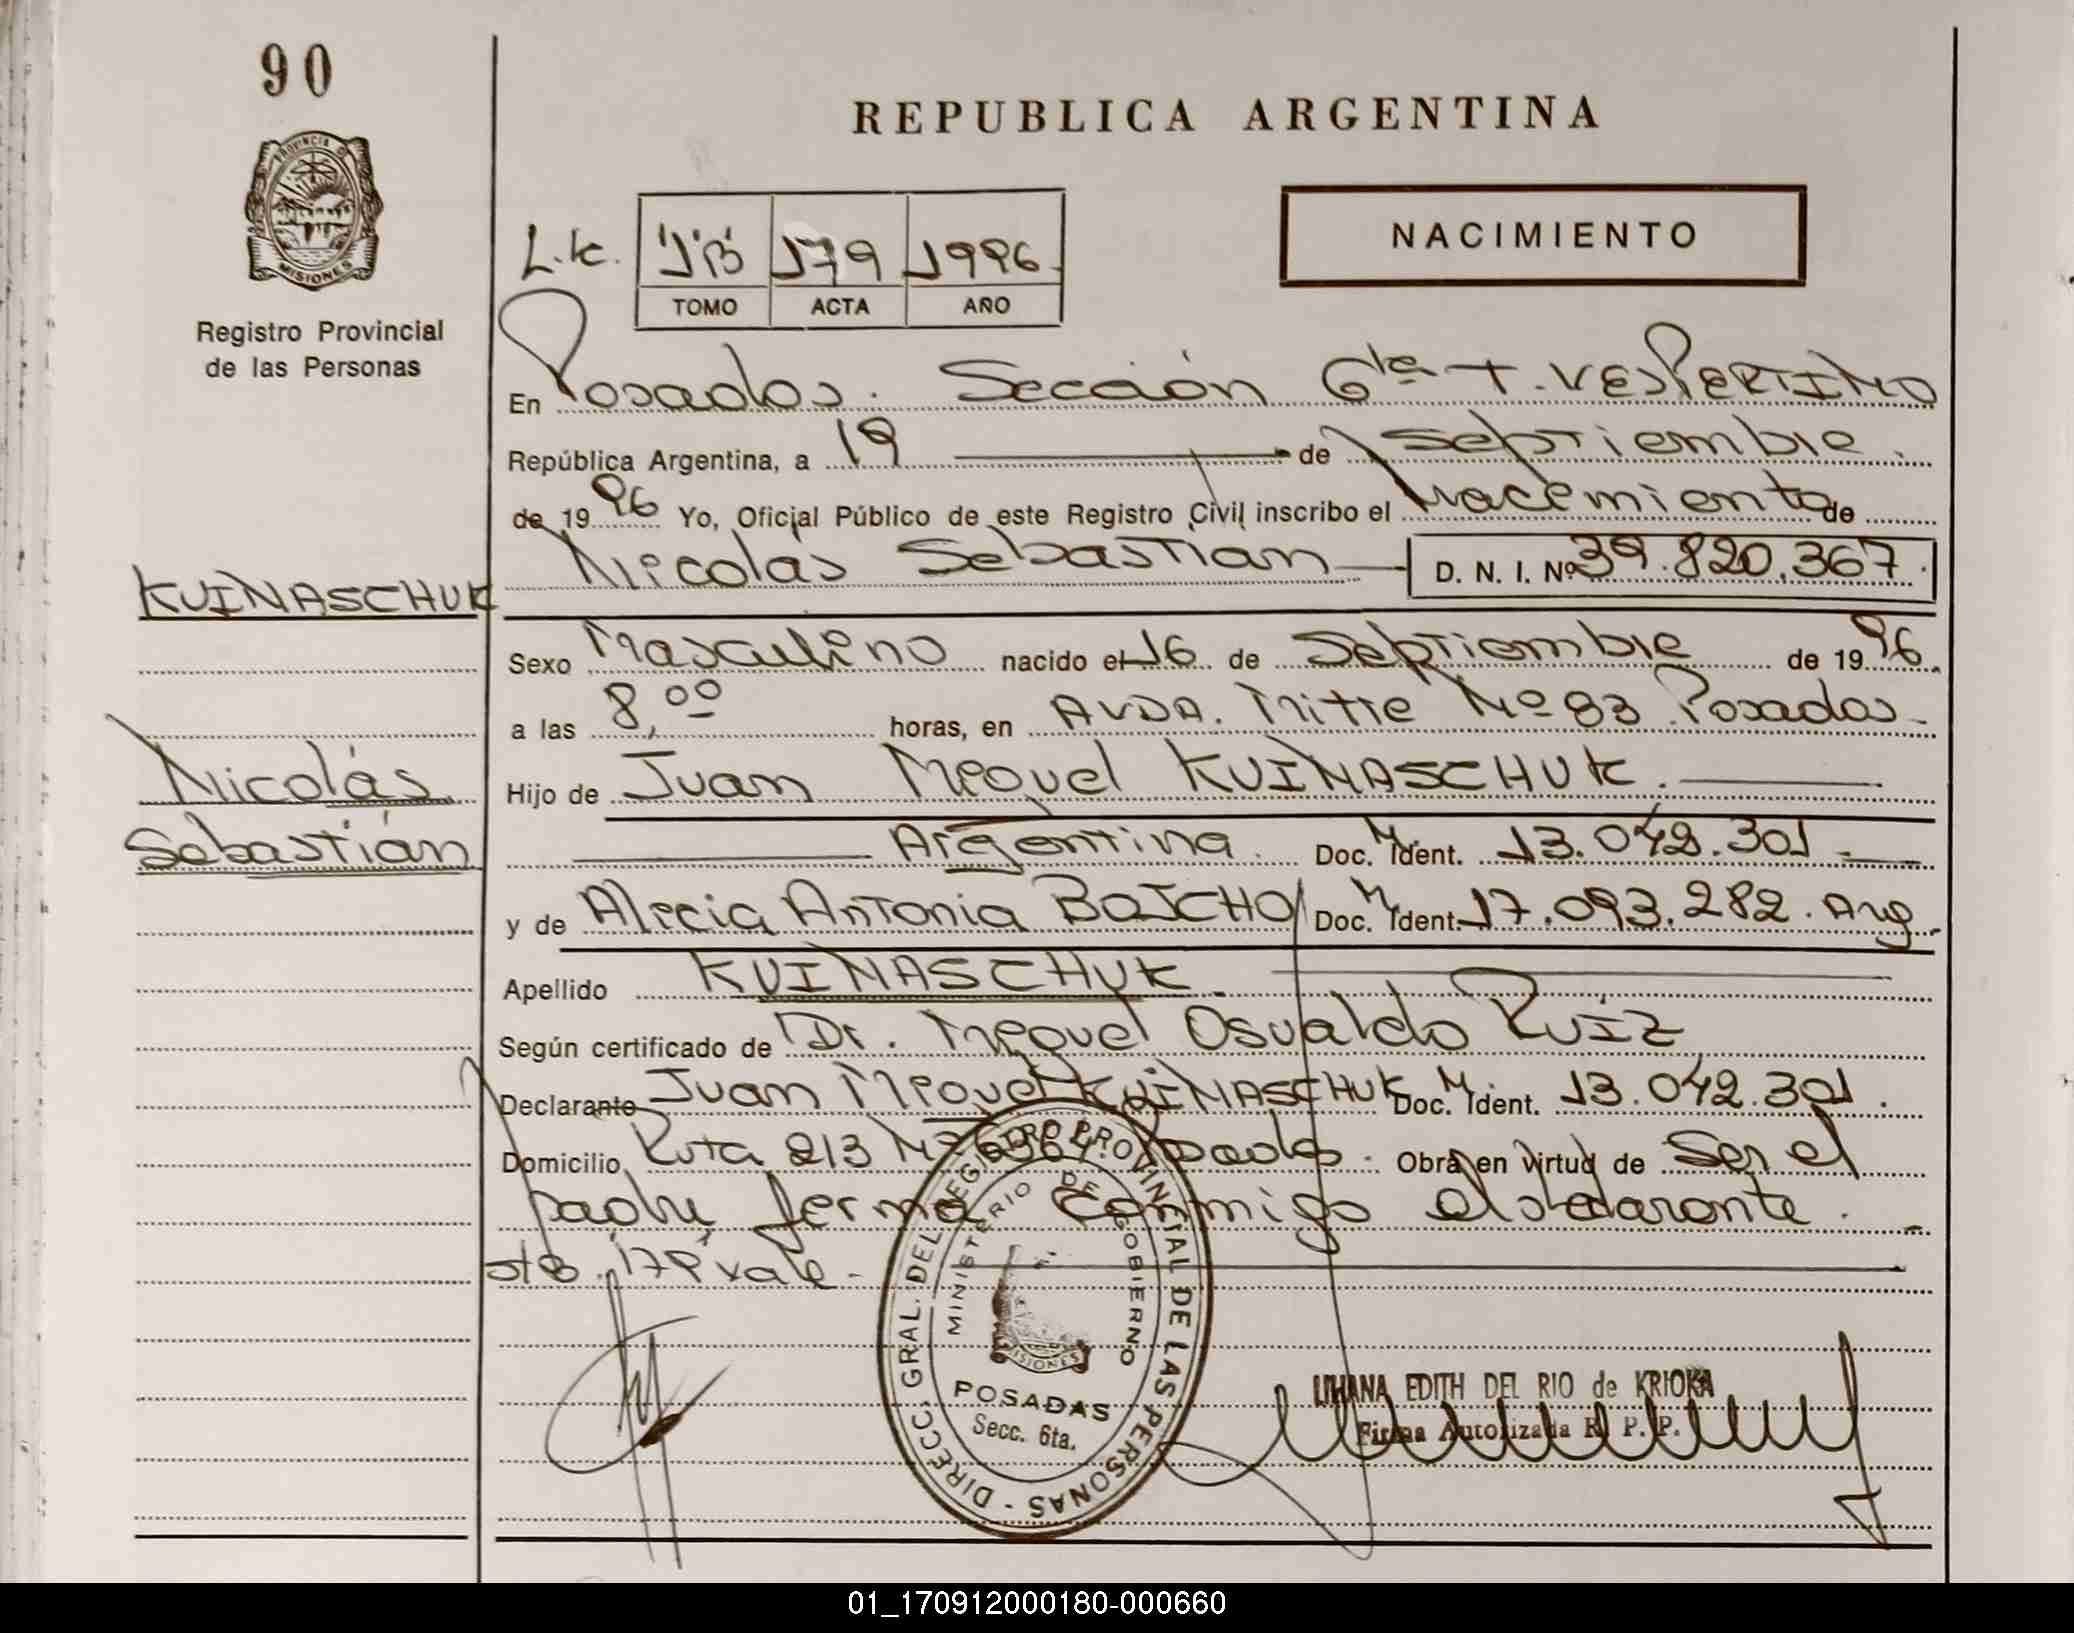 90
REPUBLICA ARGENTINA
PROVINCIA D
MISIONES
Registro Provincial
de las Personas
NACIMIENTO
179 1996
TOMO ACTA AÑO
En Posadas. Sección 6ta T. VESPERTINO
República Argentina, a 19 de Septiembre.
de 19 96 Yo, Oficial Público de este Registro Civil inscribo el nacimiento de
Nicolás Sebastián D. N. I. Nº 39.820.367.
KUINASCHUK
Sexo Masculino nacido el 16 de Septiembre de 19 96.
a las 8,00 horas, en AVDA. Mitre Nº 83 Posadas.
Nicolás
Sebastián
Hijo de Juan Miguel KUINASCHUK.
Argentina. Doc. M Ident. 13.042.301.
y de Alicia Antonia BOJCHO Doc. M Ident. 17.093.282. Arg.
Apellido KUINASCHUK.
Según certificado de Dr. Miguel Osvaldo RUIZ
Declarante Juan Miguel KUINASCHUK Doc. M Ident. 13.042.301.
Domicilio Ruta 213 Nº Posadas. Obra en virtud de Ser el
padre firma conmigo el declarante.
179 vale.
DIRECC. GRAL. DEL REGISTRO PROVINCIAL DE LAS PERSONAS -
MINISTERIO DE GOBIERNO
MISIONES
POSADAS
Secc. 6ta.
LILIANA EDITH DEL RIO de KRIOKA
Firma Autorizada R. P. P.
01_170912000180-000660